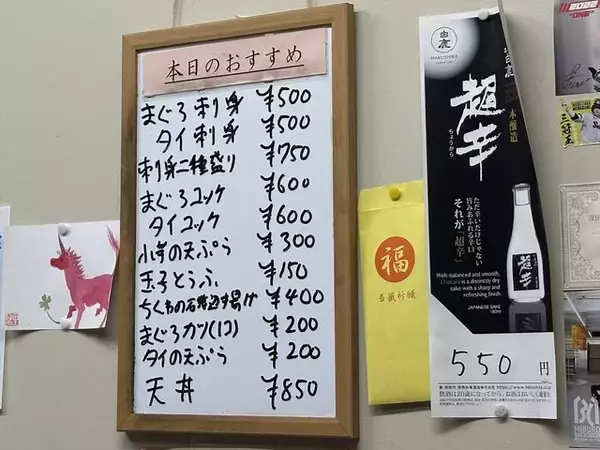 本日のおすすめ
まぐろ刺身 ¥500
タイ刺身 ¥500
刺身二種盛り ¥750
まぐろユッケ ¥600
タイユッケ ¥600
小芋の天ぷら ¥300
玉子とうふ ¥150
ちくわの石垣辺揚げ ¥400
まぐろカツ(1コ) ¥200
タイの天ぷら ¥200
天丼 ¥850
福
当籤祈願
白鹿
HAKUSHIKA
本醸造
超辛
ちょうから
ただ辛いだけじゃない
旨みあふれる辛口
それが「超辛」
Well-balanced and smooth,
Chokara is a distinctly dry
sake with a sharp and
refreshing finish.
JAPANESE SAKE
180ml
超辛
550円
飲酒は20歳になってから。
2022
"ONE"
三冠王